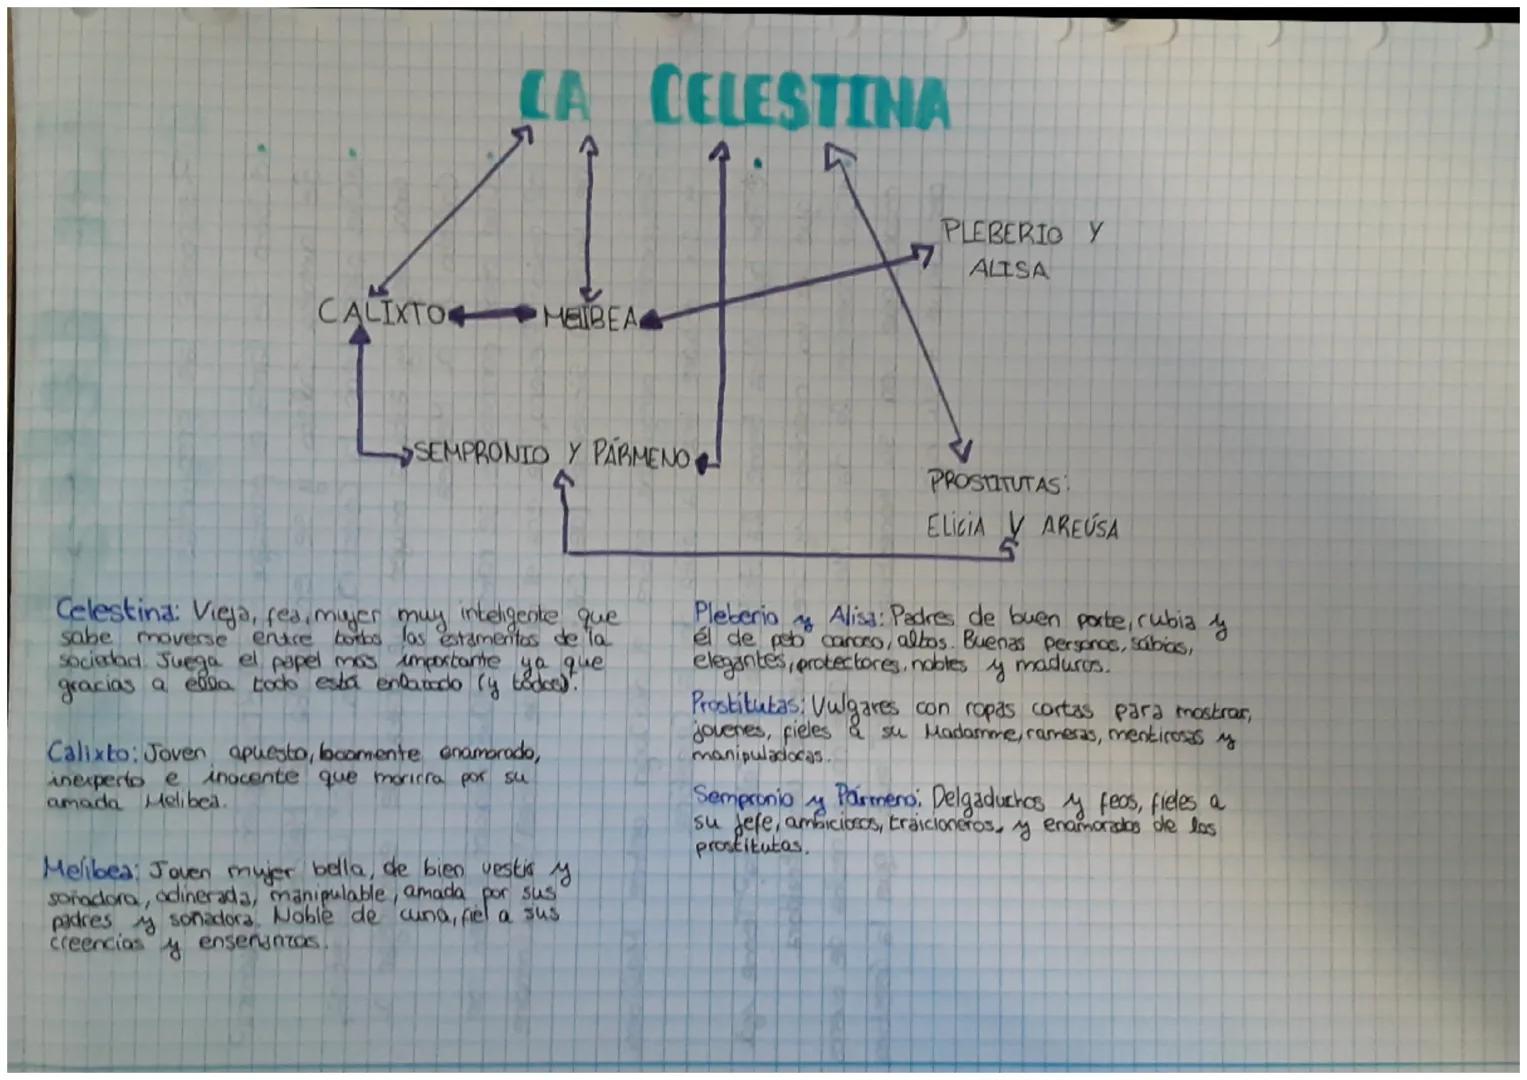 LA CELESTINA
PLEBERIO Y
ALISA
CALIXTO
MELIBEA
SEMPRONIO Y PÁRMENO
PROSTITUTAS:
ELICIA Y AREÚSA
Celestina: Vieja, fea, mujer muy inteligente que
sabe moverse entre todos los estamentos de la
sociedad. Juega el papel mas importante ya que
gracias a ella todo está enlazado (y todos).
Calixto: Joven apuesto, locamente enamorado,
inexperto e inocente que morirra por su
amada Melibea.
Melibea: Joven mujer bella, de bien vestir y
soñadora, adinerada, manipulable, amada por sus
padres y soñadora. Noble de cuna, fiel a sus
creencias y enseñanzas.
Pleberio y Alisa: Padres de buen porte, rubia y
él de pelo canoso, altos. Buenas personas, sabios,
elegantes, protectores, nobles y maduros.
Prostitutas: Vulgares con ropas cortas para mostrar,
jovenes, fieles a su Madamme, rameras, mentirosas y
manipuladoras.
Sempronio y Pármeno: Delgaduchos y feos, fieles a
su jefe, ambiciosos, traicioneros, y enamorados de las
prostitutas.